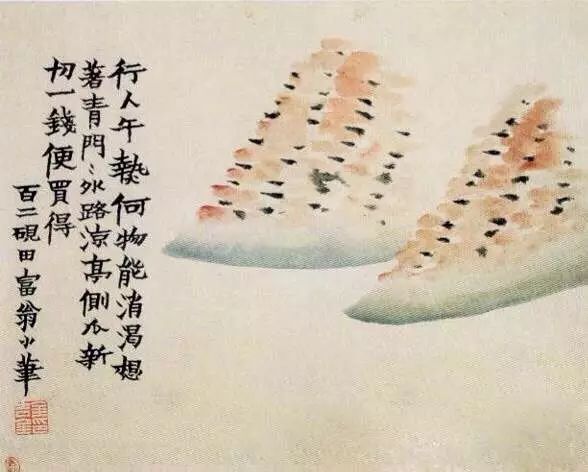 行人午熱何物能消渴想
著青門〻外路涼亭側瓜新
切一錢便買得
百二硯田富翁小筆